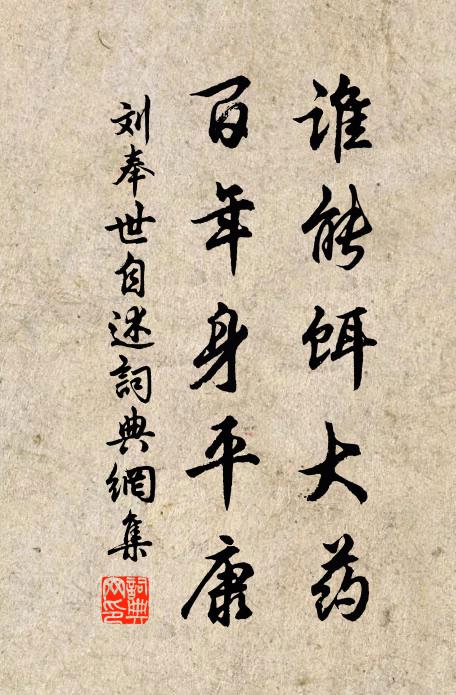 谁能饵大药
百年身平康
刘奉世自述詞典網集
詞典网印